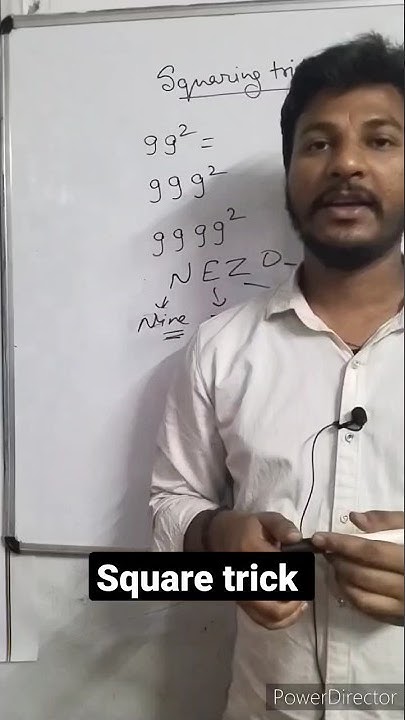 Squaring tri
99² =
999²
9999²
NEZO-
Nine
Square trick
PowerDirector